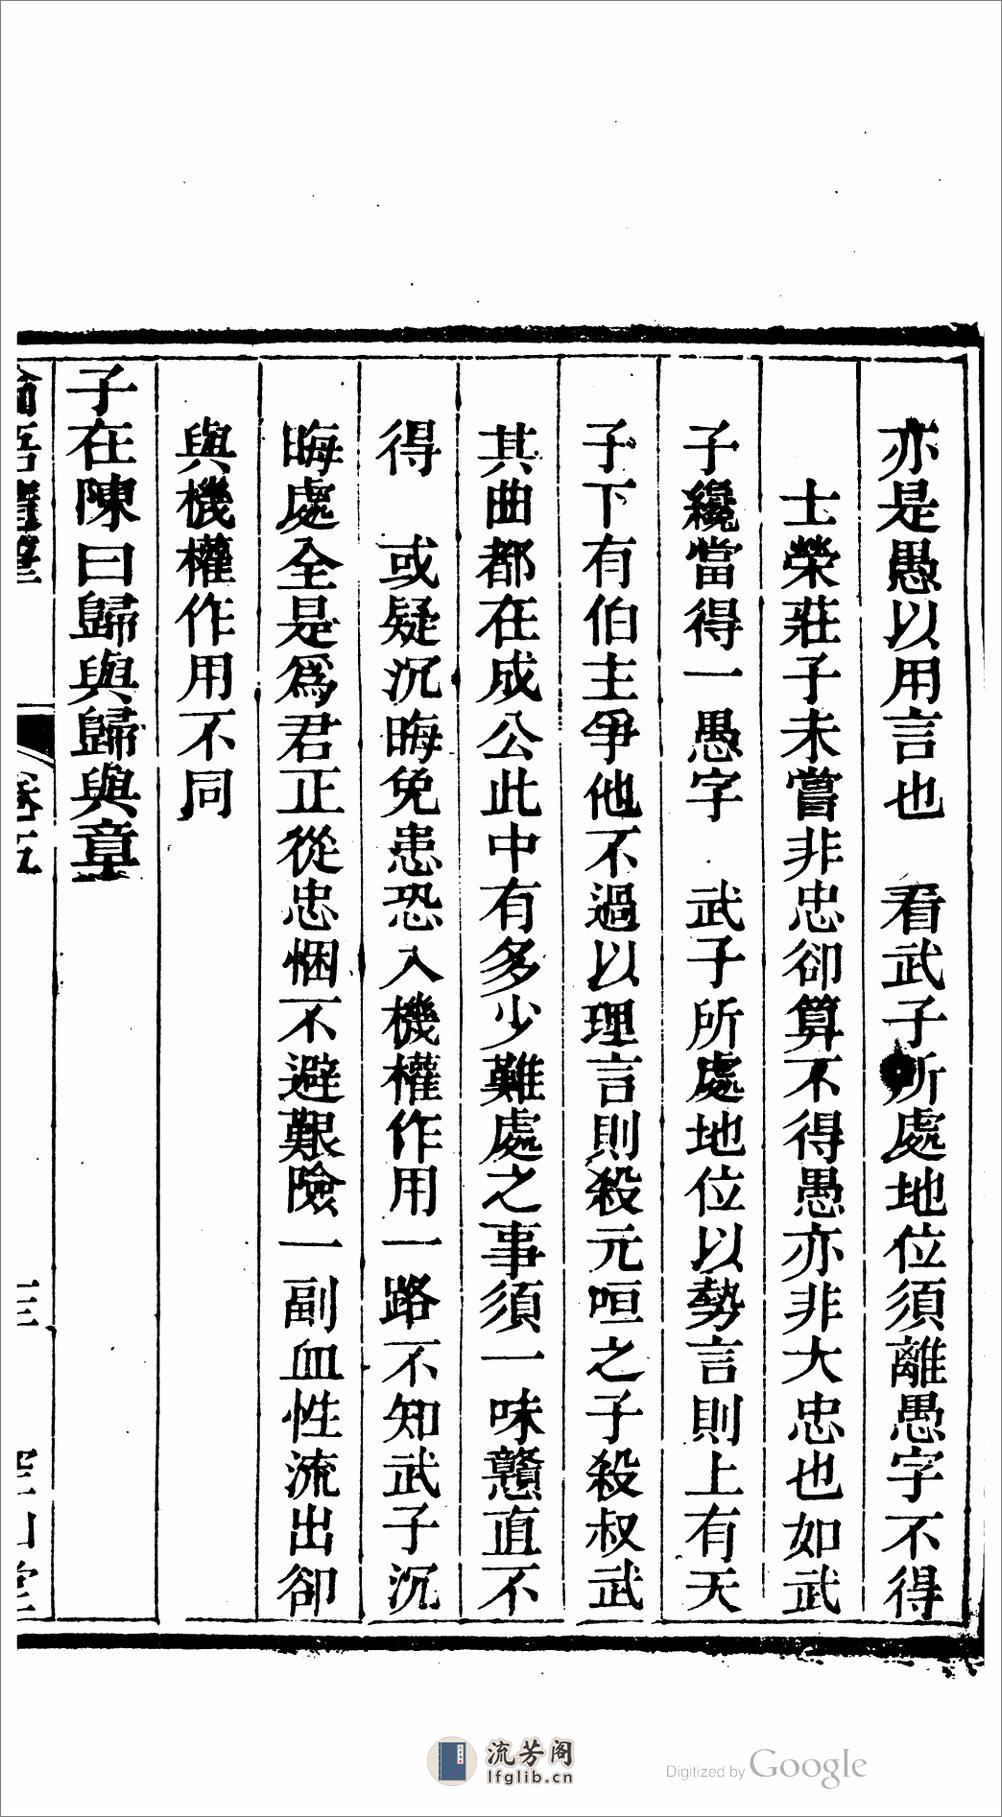 亦是愚以用言也　看武子所處地位須離愚字不得
士榮莊子未嘗非忠卻算不得愚亦非大忠也如武
子纔當得一愚字　武子所處地位以勢言則上有天
子下有伯主爭他不過以理言則殺元咺之子殺叔武
其曲都在成公此中有多少難處之事須一味戇直不
得　或疑沉晦免患恐入機權作用一路不知武子沉
晦處全是爲君正從忠悃不避艱險一副血性流出卻
與機權作用不同
子在陳曰歸與歸與章
卷五
流芳阁
lfglib.cn
Digitized by Google